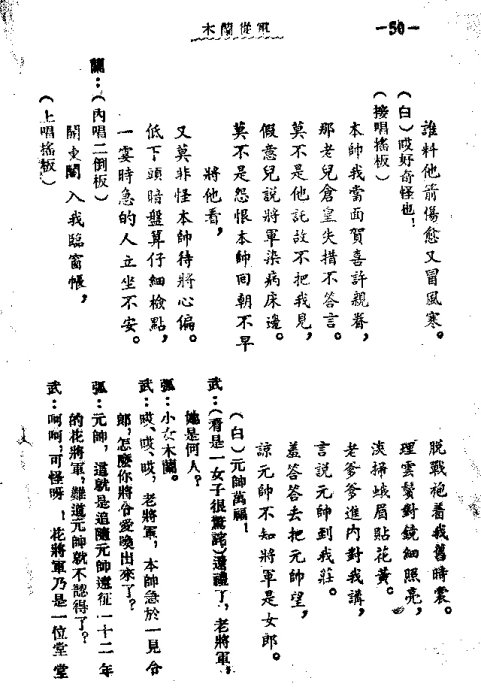 木蘭從軍
—50—
誰料他箭傷愈又冒風寒。
(白)哎好奇怪也!
(接唱搖板)
本帥我當面賀喜許親眷,
那老兒倉皇失措不答言。
莫不是他託故不把我見,
假意兒說將軍染病床邊。
莫不是怨恨本帥回朝不早
將他看,
又莫非怪本帥待將心偏。
低下頭暗盤算仔細檢點,
一霎時急的人立坐不安。
蘭:(內唱二倒板)
開東閣入我臨窗帳,
(上唱搖板)
脫戰袍着我舊時裳。
理雲鬢對鏡細照亮,
淡掃蛾眉貼花黃。
老爹爹進內對我講,
言說元帥到我莊。
羞答答去把元帥望,
諒元帥不知將軍是女郎。
(白)元帥萬福!
武:(看是一女子很驚詫)還禮了,老將軍,
她是何人?
弧:小女木蘭。
武:哎、哎、哎,老將軍,本帥急於一見令
郎,怎麼你將令愛喚出來了?
弧:元帥,這就是追隨元帥遠征一十二年
的花將軍,難道元帥就不認得了?
武:呵呵,可怪呀!花將軍乃是一位堂堂